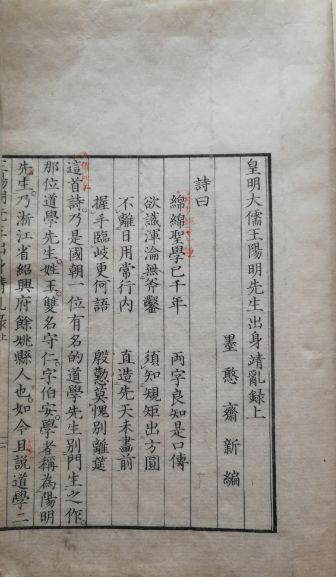 皇明大儒王陽明先生出身靖亂錄上
墨憨齋新編
詩曰
綿綿聖學已千年　兩字良知是口傳
欲識渾淪無斧鑿　須知規矩出方圓
不離日用常行內　直造先天未畫前
握手臨岐更何語　殷懃莫愧別離筵
這首詩乃是國朝一位有名的道學先生別門生之作
那位道學先生姓王雙名守仁字伯安學者稱為陽明
先生乃浙江省紹興府餘姚縣人也如今且說道學二